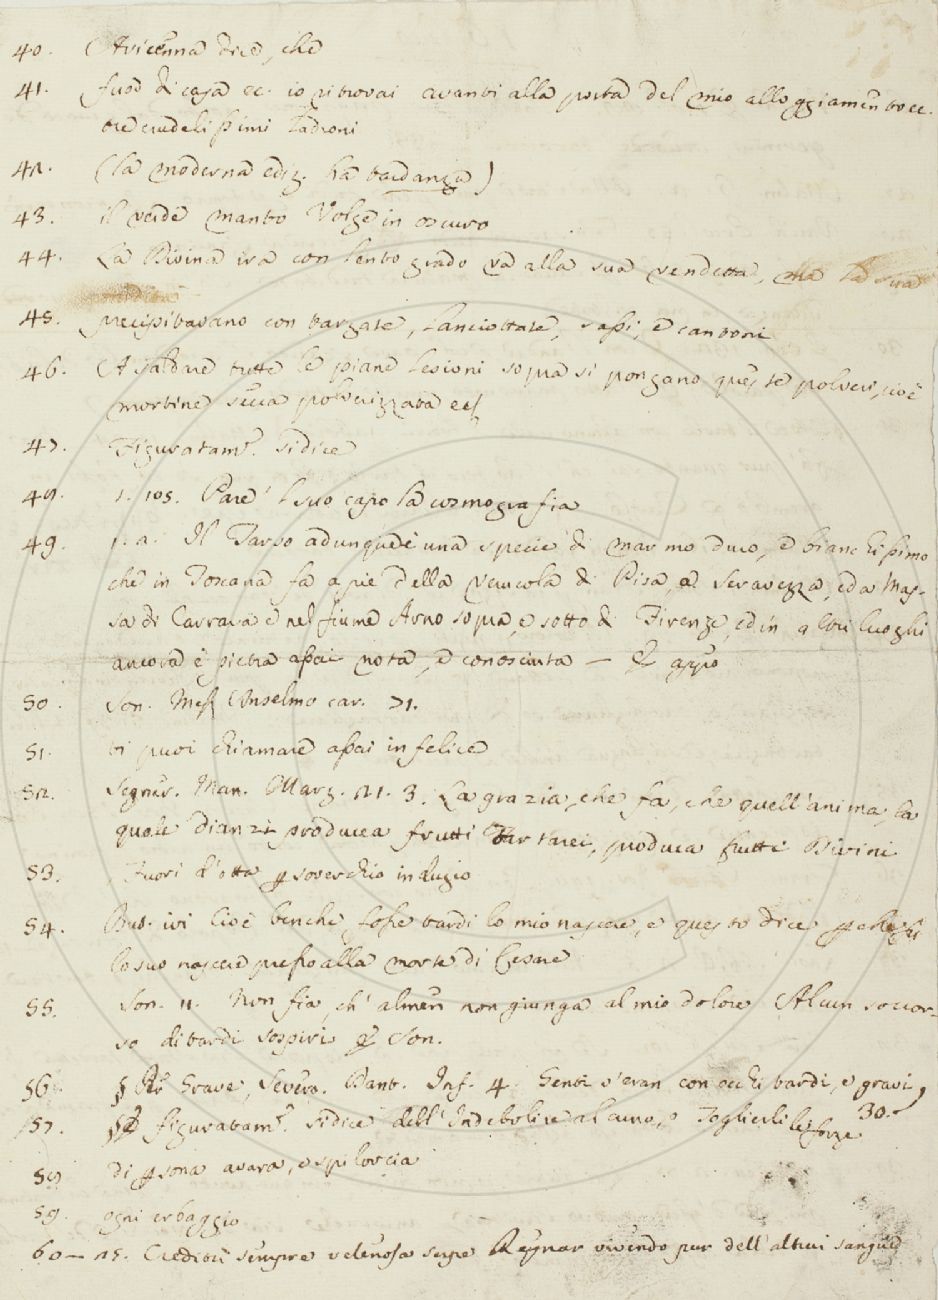 40. Avicenna dice, che
41. fuor di casa ec. io ritrovai avanti alla porta del mio alloggiamento ec.
tre crudelissimi Ladroni
42. (la moderna ediz. ha tardanza)
43. il verde manto Volge in oscuro
44. La Divina ira con lento grado và alla sua vendetta, ma la sua
tardità
45. precipitavano con targate, Lanciottate, sassi, e cantoni
46. A saldare tutte le piane lesioni sopra si pongano queste polveri, cioè
mortine secca polverizzata ec
47. Figuratam.e si dice
48. 1. 105. Pare 'l suo capo la cosmografia
49. p. a. Il Tarso adunque è una specie di marmo duro, e bianchissimo
che in Toscana fa a piè della Verrucola di Pisa, a Seravezza, ed a Mas-
sa di Carrara e nel fiume Arno sopra, e sotto di Firenze, ed in altri luoghi
ancora è pietra assai nota, e conosciuta —
50. Son. Mess Anselmo car. 71.
51. ti puoi chiamare assai infelice
52. Segner. Man. Marz. 21. 3. La grazia, che fa, che quell'anima, la
quale dianzi producea frutti Tartarei, produca frutti Divini
53. Fuori d'otta p soverchio indugio
54. But. ivi Cioè benchè fosse tardi lo mio nascere, e questo dice
lo suo nascere presso alla morte di Cesare
55. Son. 11. Non fia, ch' almen non giunga al mio dolore Alcun soccor-
so di tardi sospiri Son.
56. § Per Grave, Severo. Dant. Inf. 4. Genti v'eran con occhi tardi, e gravi,
57. § figuratam.e si dice dell'Indebolire alcuno, o Toglierli le forze 30.
58 di psona avara, e spilorcia
59. ogni erbaggio
60 — 25. Credetti sempre velenosa serpe Regnar vivendo pur dell'altrui sangue